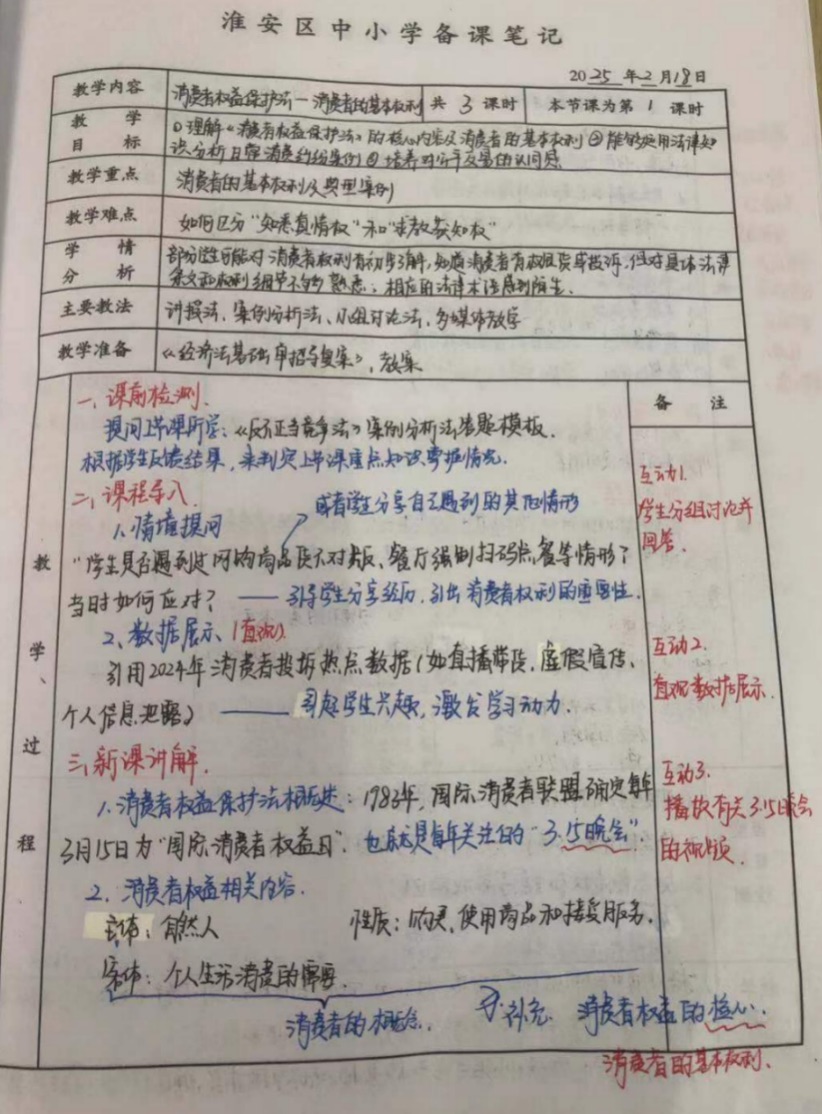 淮安区中小学备课笔记
2025年2月18日
教学内容 消费者权益保护法—消费者的基本权利 共3课时 本节课为第1课时
教学目标 ①理解《消费者权益保护法》的核心内容及消费者的基本权利②能够运用法律知
识分析日常消费纠纷案例③培养对公平交易的认同感
教学重点 消费者的基本权利及典型案例
教学难点 如何区分“知悉真情权”和“求教获知权”
学情分析 部分学生可能对消费者权利有初步了解,知道消费者有权退货或投诉,但对具体法律
条文和权利细节不够熟悉;相应的法律术语感到陌生.
主要教法 讲授法、案例分析法、小组讨论法、多媒体教学
教学准备 《经济法基础单招导复案》,教案
教学、过程
备注
一、课前检测.
提问上节课所学:《反不正当竞争法》案例分析法答题模板.
根据学生反馈结果,来判定上节课重点知识掌握情况.
二、课程导入
或者学生分享自己遇到的其他情形
1、情境提问
“学生是否遇到过网购商品货不对板、餐厅强制扫码点餐等情形?
当时如何应对? ——引导学生分享经历,引出消费者权利的重要性.
互动1.
学生分组讨论并
回答.
2、数据展示(直观)
引用2024年消费者投诉热点数据(如直播带货、虚假宣传、
个人信息泄露) ——引起学生兴趣,激发学习动力.
互动2.
直观数据展示.
三、新课讲解.
1、消费者权益保护法相关概述:1983年,国际消费者联盟确定每年
3月15日为“国际消费者权益日”.也就是每年关注的“3.15晚会”.
互动3.
播放有关3.15晚会
的视频.
2、消费者权益相关内容.
主体:自然人 性质:购买、使用商品和接受服务.
客体:个人生活消费的需要.
消费者的概念. 补充 消费者权益的核心.
消费者的基本权利.